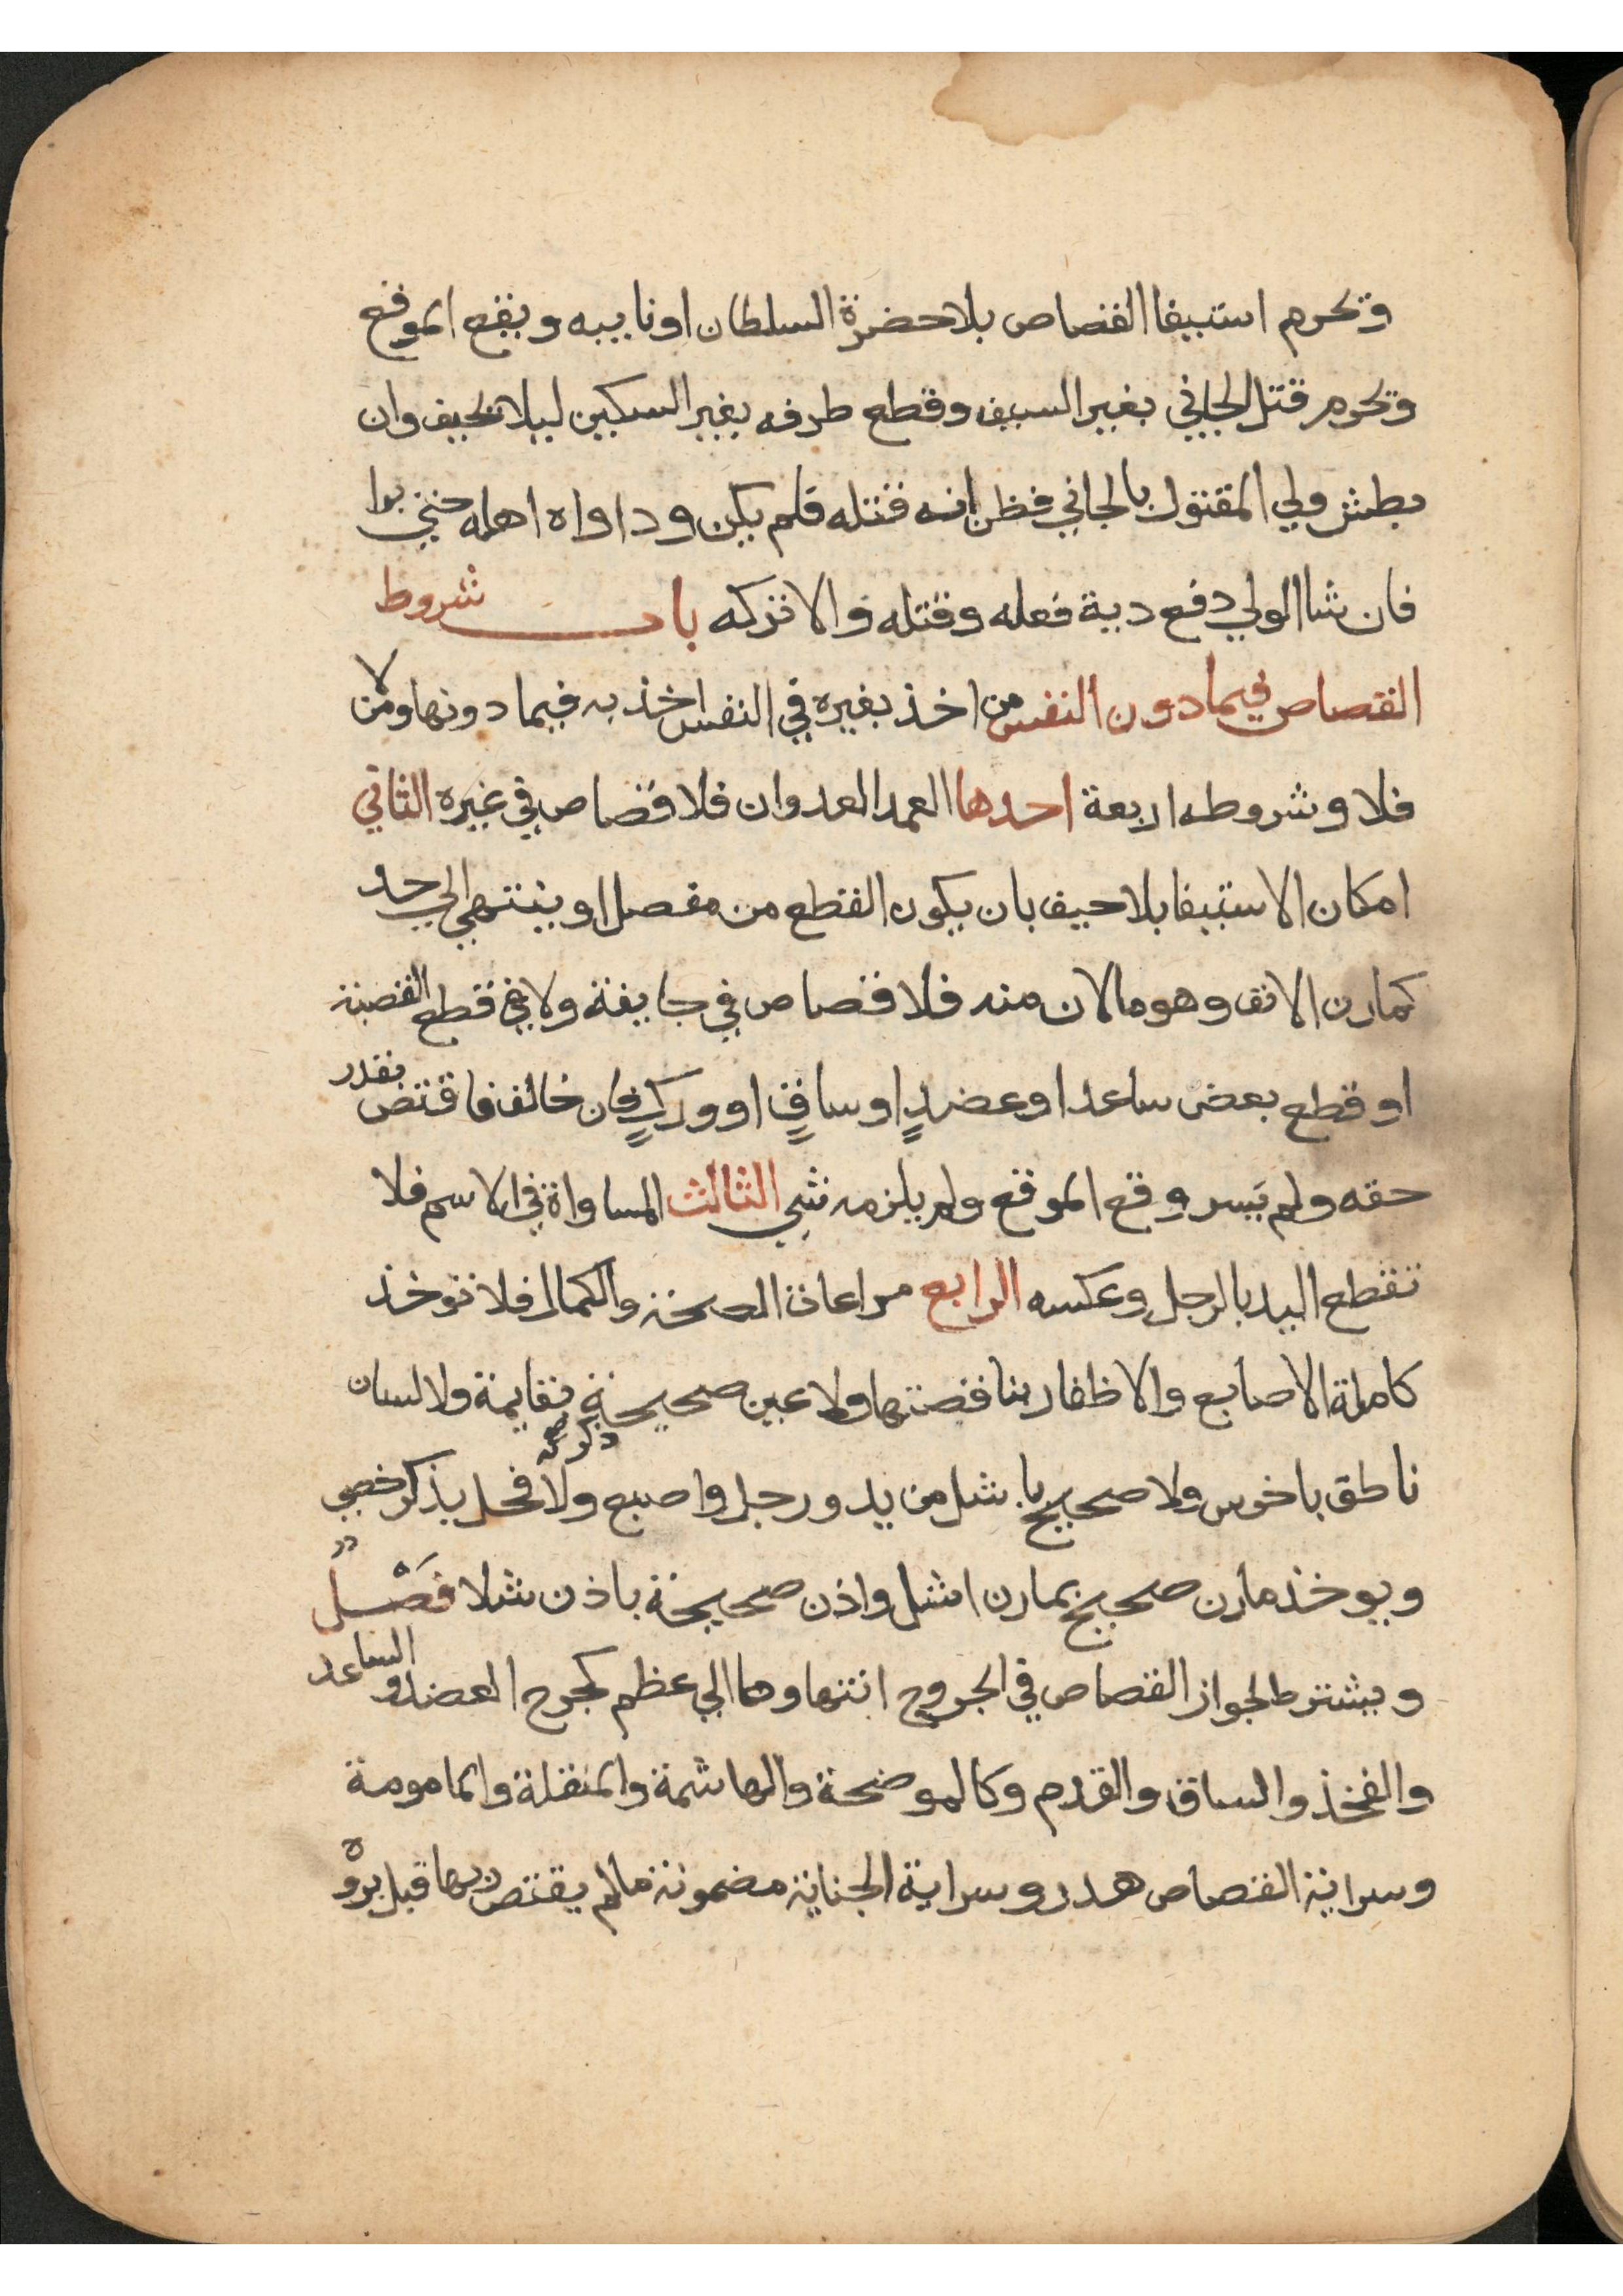 ويحرم استيفا القصاص بلا حضرة السلطان او نايبه ويقع الموقع
ويحرم قتل الجاني بغير السيف وقطع طرفه بغير السكين ليلا يحيف وان
بطش ولي المقتول بالجاني فظن انه قتله فلم يكن وداواه اهله حتي برا
فان شا الولي دفع دية فعله وقتله والا تركه باب شروط
القصاص فيما دون النفس من اخذ بغيره في النفس اخذ به فيما دونها ومن لا
فلا وشروطه اربعة احدها العمد العدوان فلا قصاص في غيره الثاني
امكان الاستيفا بلا حيف بان يكون القطع من مفصل او ينتهي الي حد
كمارن الانف وهو مالان منه فلا قصاص في جايفة ولا في قطع القصبة
او قطع بعض ساعد او عضدٍ او ساقٍ او وركٍ فان خالف فاقتص بقدر
حقه ولم يَسر وقع الموقع ولم يلزمه شي الثالث المساواة في الاسم فلا
تقطع اليد بالرجل وعكسه الرابع مراعاة الصحة والكمال فلا توخذ
كاملة الاصابع والاظفار بناقصتها ولا عين صحيحة بقايمة ولا لسان
ناطق باخرس ولا صحيح باشل من يد ورجل واصبع ولا ذكر صح فحل بذكر خصي
ويوخذ مارن صحيح بمارن اشل واذن صحيحة باذن شلا فَصْلٌ
ويشترط لجواز القصاص في الجروح انتهاوها الي عظم كجرح العضد والساعد
والفخذ والساق والقدم وكالموضحة والهاشمة والمنقلة والمامومة
وسراية القصاص هدر وسراية الجناية مضمونة مالم يقتص ربها قبل بروه